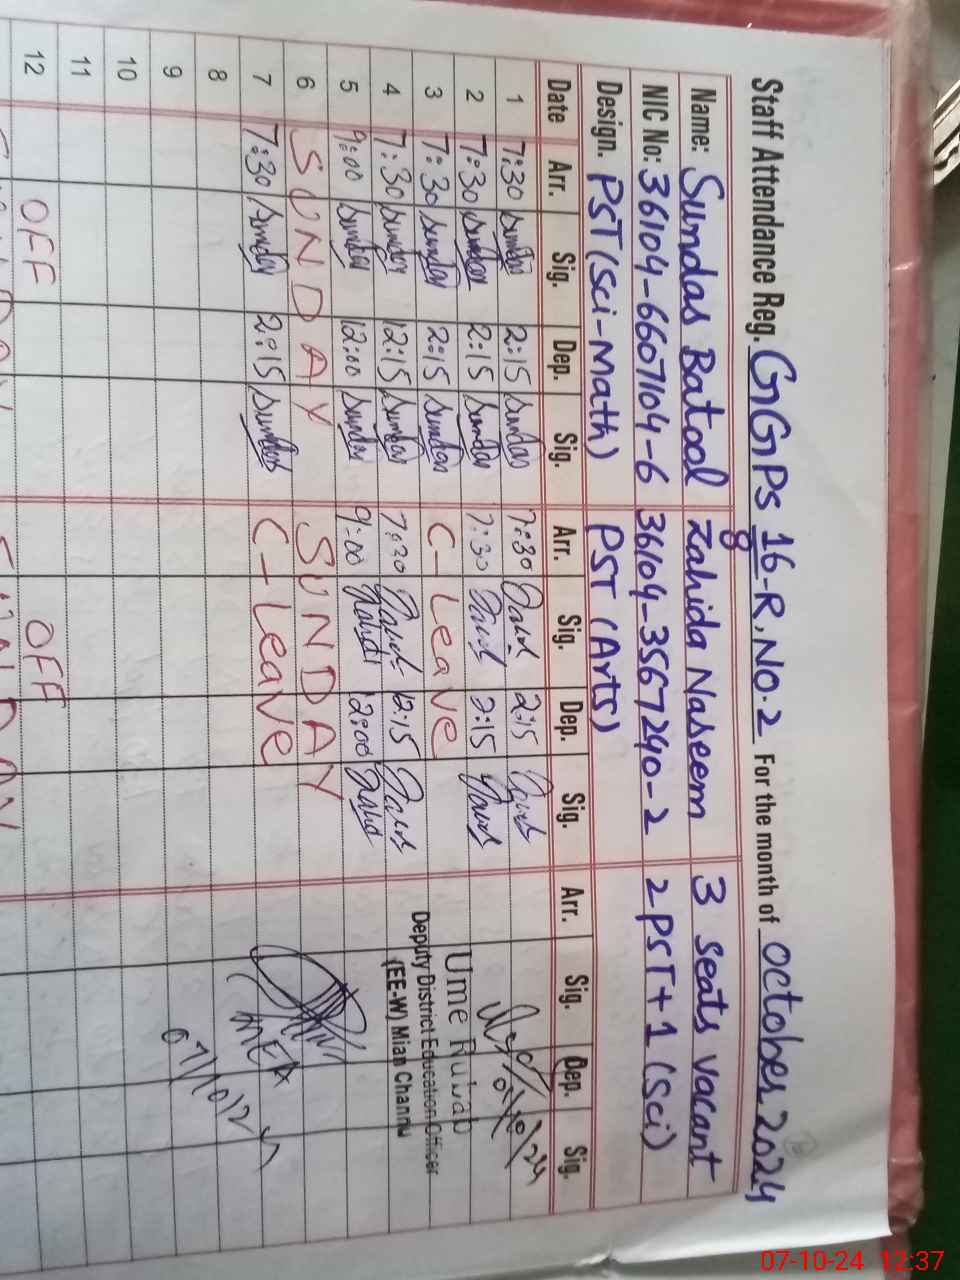 Staff Attendance Reg. GGPS 16-8-R, No. 2 For the month of October 2024
Name: Sundas Batool Zahida Naseem 3 seats vacant
NIC No: 36104-6607104-6 36104-3567240-2 2 PST + 1 (Sci)
Design. PST (Sci-Math) PST (Arts)
Date Arr. Sig. Dep. Sig. Arr. Sig. Dep. Sig. Arr. Sig. Dep. Sig.
1 7:30 Sundas 2:15 Sundas 7:30 2:15
2 7:30 Sundas 2:15 Sundas 7:30 2:15
3 7:30 Sundas 2:15 Sundas C-Leave Ume Rubab
4 7:30 Sundas 12:15 Sundas 7:30 12:15 Deputy District Education Officer
(EE-W) Mian Channu
5 9:00 Sundas 12:00 Sundas 9:00 Zahid 12:00 Zahid
6 SUNDAY SUNDAY
7 7:30 Sundas 2:15 Sundas C-Leave
8
9
10
11
12 OFF OFF
07-10-24 12:37